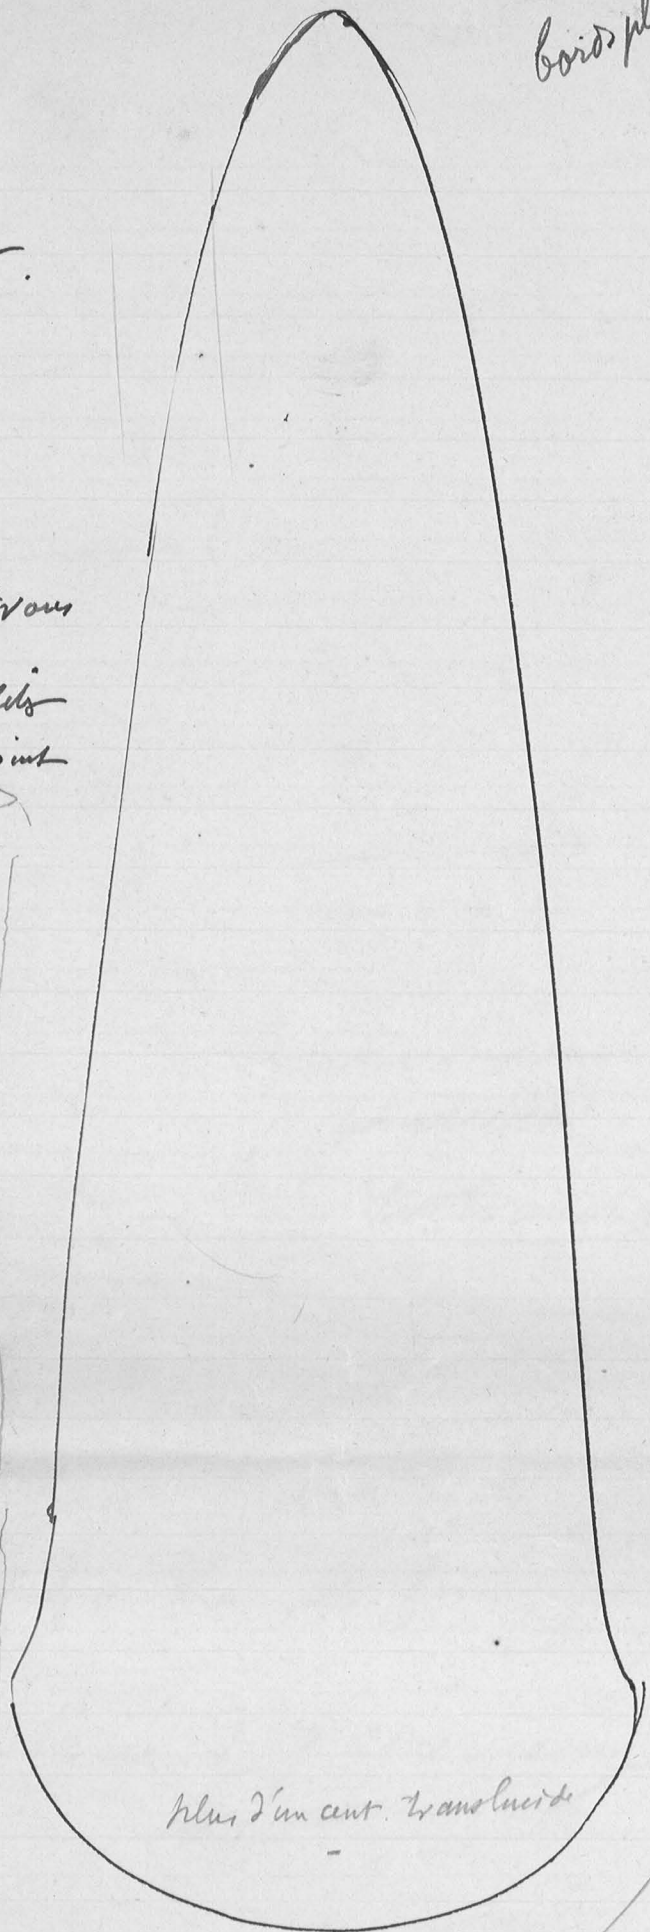 bords pl
vous
plus d'un cent. translucide